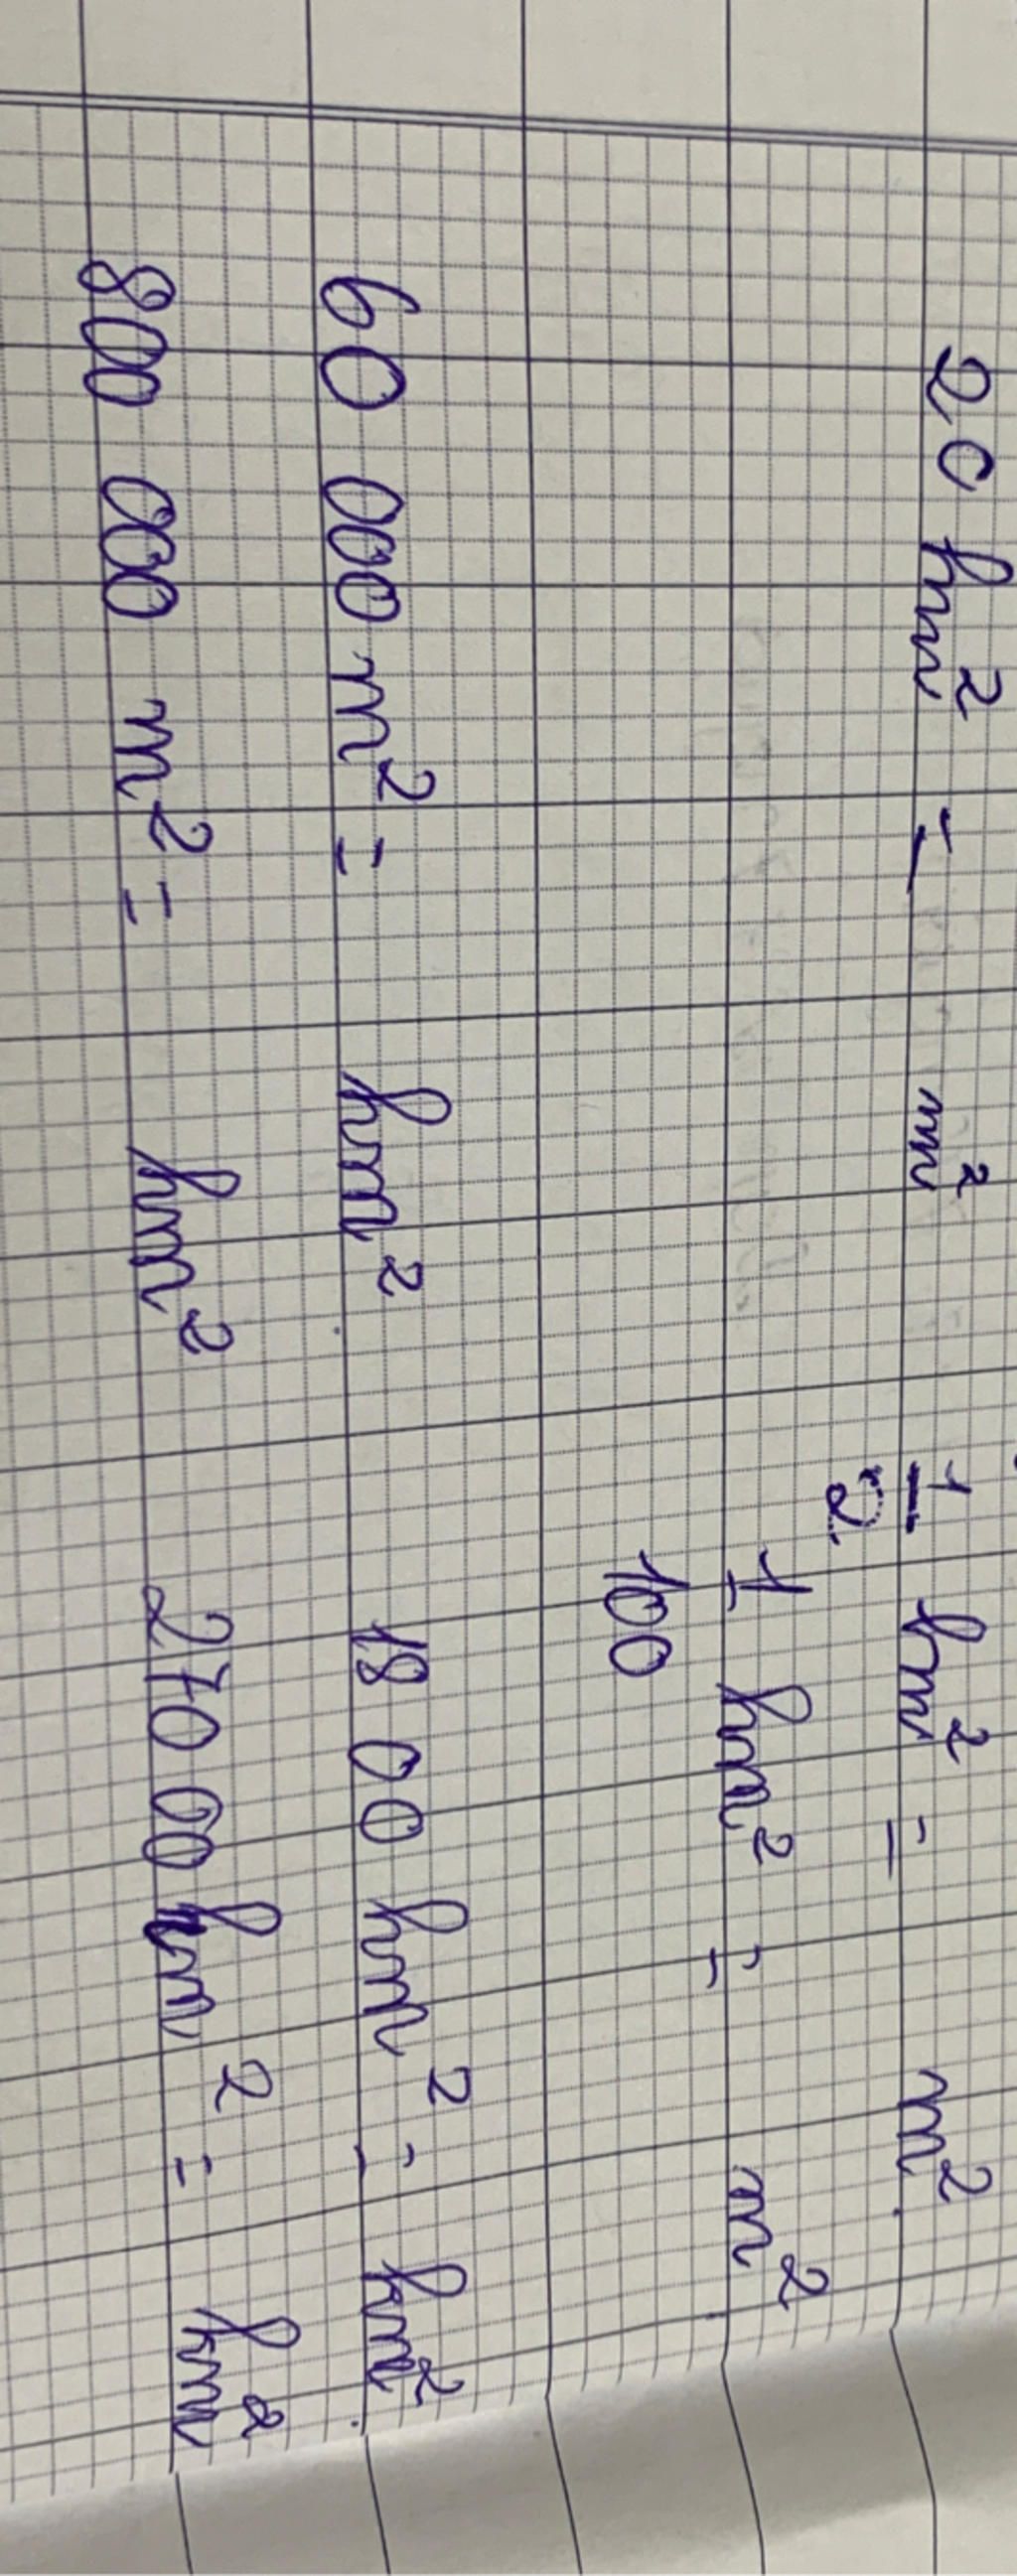 20 hm² = m² 1/2 hm² = m²
1/100 hm² = m²
60 000 m² = hm² 1800 hm² = hm²
800 000 m² = hm² 27000 hm² = hm²